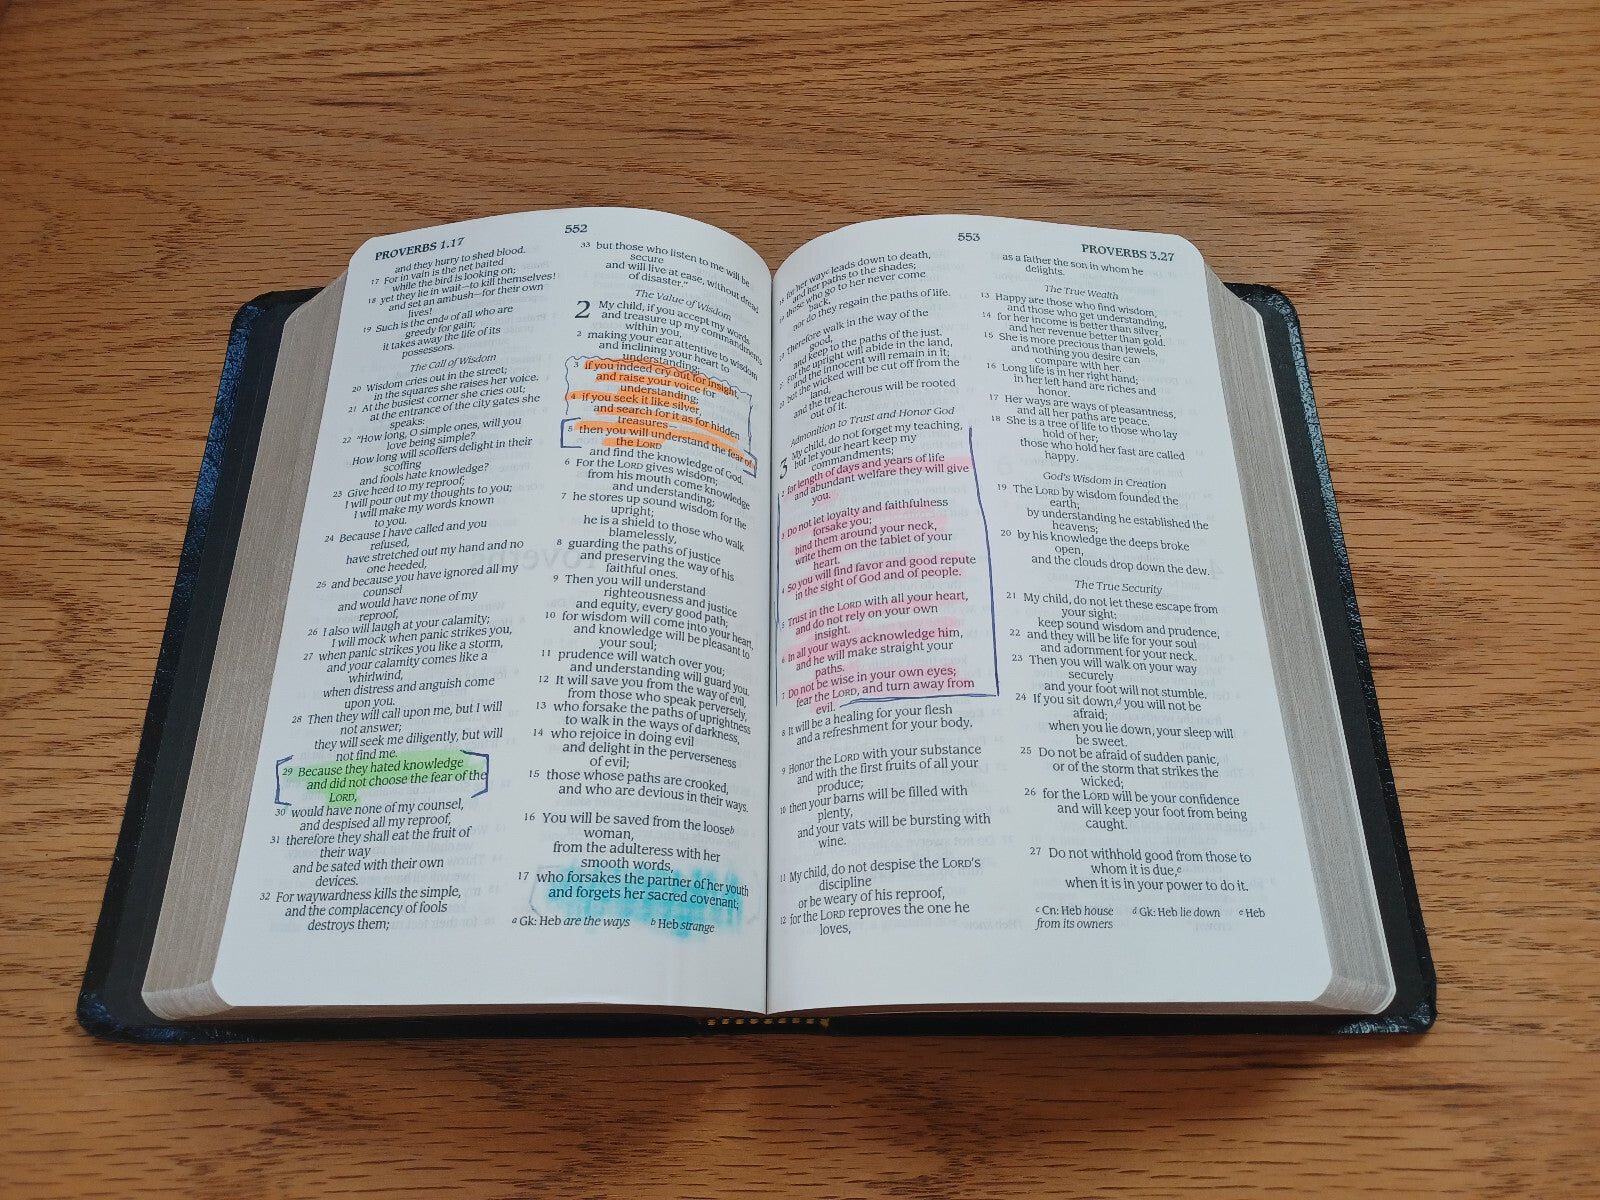 PROVERBS 1.17
552
and they hurry to shed blood.
17 For in vain is the net baited
while the bird is looking on;
18 yet they lie in wait—to kill themselves!
and set an ambush—for their own
lives!
19 Such is the endᵃ of all who are
greedy for gain;
it takes away the life of its
possessors.
The Call of Wisdom
20 Wisdom cries out in the street;
in the squares she raises her voice.
21 At the busiest corner she cries out;
at the entrance of the city gates she
speaks:
22 "How long, O simple ones, will you
love being simple?
How long will scoffers delight in their
scoffing
and fools hate knowledge?
23 Give heed to my reproof;
I will pour out my thoughts to you;
I will make my words known
to you.
24 Because I have called and you
refused,
have stretched out my hand and no
one heeded,
25 and because you have ignored all my
counsel
and would have none of my
reproof,
26 I also will laugh at your calamity;
I will mock when panic strikes you,
27 when panic strikes you like a storm,
and your calamity comes like a
whirlwind,
when distress and anguish come
upon you.
28 Then they will call upon me, but I will
not answer;
they will seek me diligently, but will
not find me.
29 Because they hated knowledge
and did not choose the fear of the
LORD,
30 would have none of my counsel,
and despised all my reproof,
31 therefore they shall eat the fruit of
their way
and be sated with their own
devices.
32 For waywardness kills the simple,
and the complacency of fools
destroys them;
33 but those who listen to me will be
secure
and will live at ease, without dread
of disaster."
The Value of Wisdom
2 My child, if you accept my words
and treasure up my commandments
within you,
2 making your ear attentive to wisdom
and inclining your heart to
understanding;
3 if you indeed cry out for insight,
and raise your voice for
understanding;
4 if you seek it like silver,
and search for it as for hidden
treasures—
5 then you will understand the fear of
the LORD
and find the knowledge of God.
6 For the LORD gives wisdom;
from his mouth come knowledge
and understanding;
7 he stores up sound wisdom for the
upright;
he is a shield to those who walk
blamelessly,
8 guarding the paths of justice
and preserving the way of his
faithful ones.
9 Then you will understand
righteousness and justice
and equity, every good path;
10 for wisdom will come into your heart,
and knowledge will be pleasant to
your soul;
11 prudence will watch over you;
and understanding will guard you.
12 It will save you from the way of evil,
from those who speak perversely,
13 who forsake the paths of uprightness
to walk in the ways of darkness,
14 who rejoice in doing evil
and delight in the perverseness
of evil;
15 those whose paths are crooked,
and who are devious in their ways.
16 You will be saved from the looseᵇ
woman,
from the adulteress with her
smooth words,
17 who forsakes the partner of her youth
and forgets her sacred covenant;
ᵃ Gk: Heb are the ways ᵇ Heb strange
553
PROVERBS 3.27
for her wayᶜ leads down to death,
and her paths to the shades;
those who go to her never come
back,
nor do they regain the paths of life.
Therefore walk in the way of the
good,
and keep to the paths of the just.
For the upright will abide in the land,
and the innocent will remain in it;
but the wicked will be cut off from the
land,
and the treacherous will be rooted
out of it.
Admonition to Trust and Honor God
3 My child, do not forget my teaching,
but let your heart keep my
commandments;
2 for length of days and years of life
and abundant welfare they will give
you.
3 Do not let loyalty and faithfulness
forsake you;
bind them around your neck,
write them on the tablet of your
heart.
4 So you will find favor and good repute
in the sight of God and of people.
5 Trust in the LORD with all your heart,
and do not rely on your own
insight.
6 In all your ways acknowledge him,
and he will make straight your
paths.
7 Do not be wise in your own eyes;
fear the LORD, and turn away from
evil.
8 It will be a healing for your flesh
and a refreshment for your body.
9 Honor the LORD with your substance
and with the first fruits of all your
produce;
10 then your barns will be filled with
plenty,
and your vats will be bursting with
wine.
11 My child, do not despise the LORD's
discipline
or be weary of his reproof,
12 for the LORD reproves the one he
loves,
as a father the son in whom he
delights.
The True Wealth
13 Happy are those who find wisdom,
and those who get understanding,
14 for her income is better than silver,
and her revenue better than gold.
15 She is more precious than jewels,
and nothing you desire can
compare with her.
16 Long life is in her right hand;
in her left hand are riches and
honor.
17 Her ways are ways of pleasantness,
and all her paths are peace.
18 She is a tree of life to those who lay
hold of her;
those who hold her fast are called
happy.
God's Wisdom in Creation
19 The LORD by wisdom founded the
earth;
by understanding he established the
heavens;
20 by his knowledge the deeps broke
open,
and the clouds drop down the dew.
The True Security
21 My child, do not let these escape from
your sight:
keep sound wisdom and prudence,
22 and they will be life for your soul
and adornment for your neck.
23 Then you will walk on your way
securely
and your foot will not stumble.
24 If you sit down,ᵈ you will not be
afraid;
when you lie down, your sleep will
be sweet.
25 Do not be afraid of sudden panic,
or of the storm that strikes the
wicked;
26 for the LORD will be your confidence
and will keep your foot from being
caught.
27 Do not withhold good from those to
whom it is due,ᵉ
when it is in your power to do it.
ᶜ Cn: Heb house ᵈ Gk: Heb lie down ᵉ Heb
from its owners